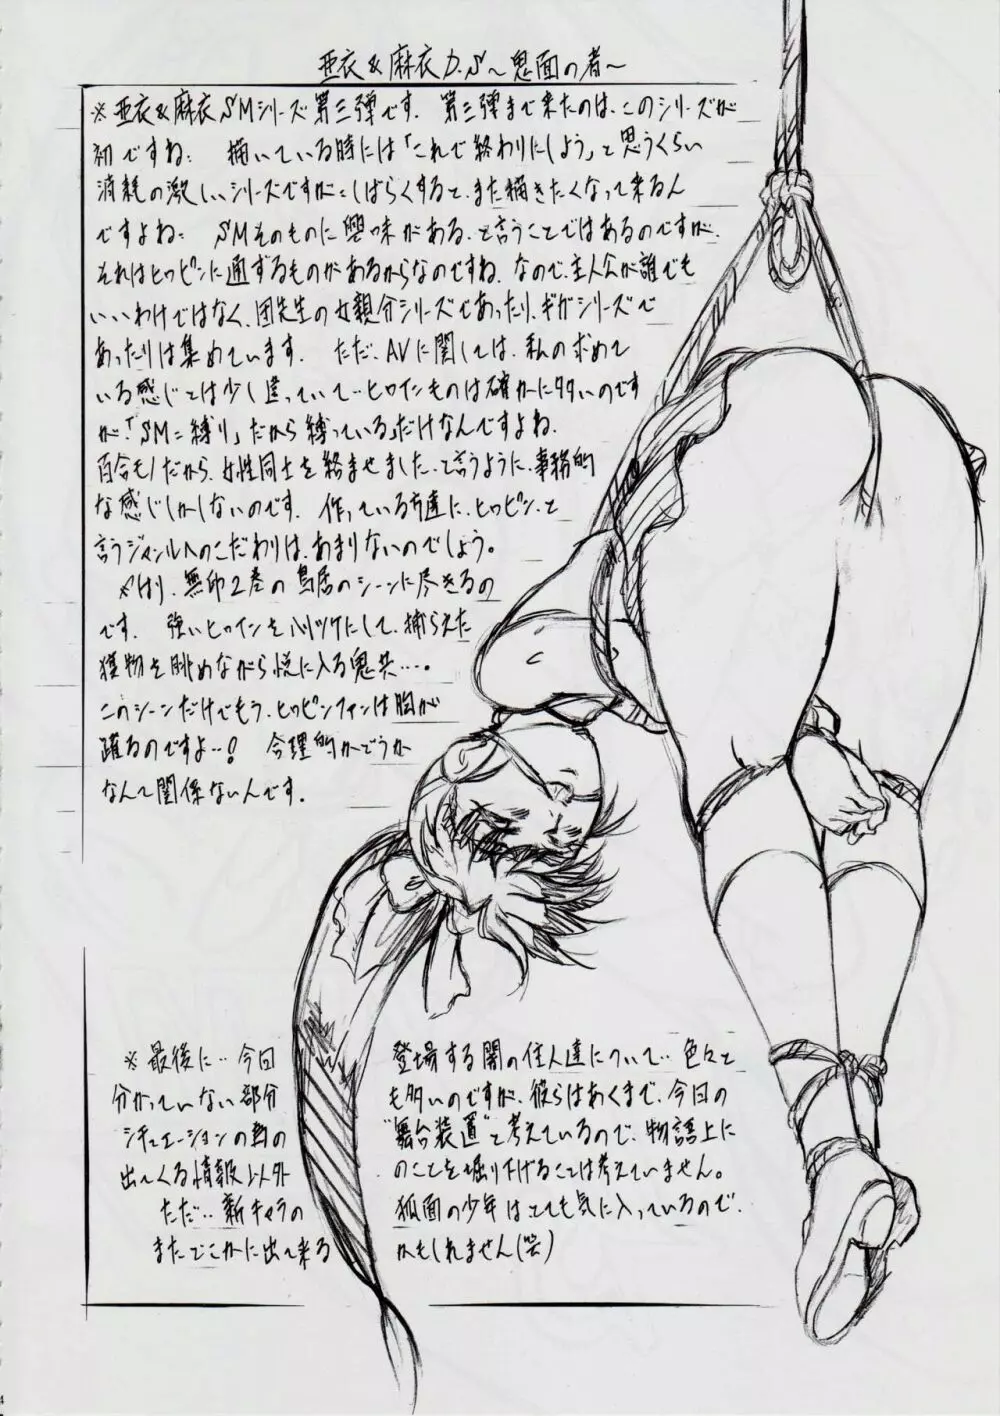 亜衣&麻衣D.S〜鬼面の者〜
※亜衣&麻衣SMシリーズ第三弾です. 第三弾まで来たのは、このシリーズが
初ですね: 描いている時には「これで終わりにしよう」と思うくらい
消耗の激しいシリーズですが:しばらくすると、また描きたくなって来るん
ですよね: SMそのものに興味がある、と言うことではあるのですが、
それはヒロピンに通ずるものがあるからなのですね、なので、主人公が誰でも
いいわけではなく、団先生の女親分シリーズであったり、ギガシリーズで
あったりは集めています. ただ、AVに関しては、私の求めて
いる感じとは少し違っていて‥ヒロインものは確かに多いのです
が、「SM=縛り」だから縛っている」だけなんですよね.
百合モノだから、女性同士を絡ませました‥と言うように、事務的
な感じしかしないのです. 作っている方達に、ヒロピン、と
言うジャンルへのこだわりは、あまりないのでしょう。
やはり、無印2巻の鳥居のシーンに尽きるの
です. 強いヒロインをハリツケにして、捕らえた
獲物を眺めながら悦に入る鬼共‥‥。
このシーンだけでもう、ヒロピンファンは胸が
躍るのですよ‥! 合理的かどうか
なんて関係ないんです.
※最後に‥今回登場する闇の住人達について‥色々と
分かっていない部分も多いのですが、彼らはあくまで、今回の
シチュエーションの為の"舞台装置"と考えているので、物語上に
出てくる情報以外のことを堀り下げることは考えていません。
ただ‥新キャラの狐面の少年はとても気に入っているので、
またどこかに出て来るかもしれません(笑)